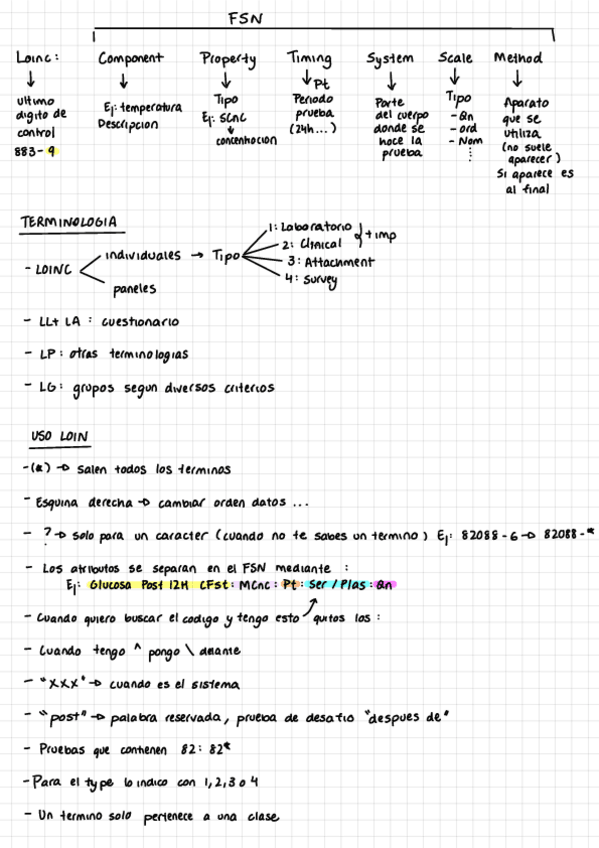 FSN
Loinc: Component Property Timing System Scale Method
ultimo digito de control 883-9
Ej: temperatura Descripcion
Tipo Ej: SCnc ↓ concentracion
Pt Periodo prueba (24h...)
Parte del cuerpo donde se hace la prueba
Tipo - Qn - ord - Nom ⋮
Aparato que se utiliza (no suele aparecer) Si aparece es al final
TERMINOLOGIA
- LOINC individuales → Tipo
1: Laboratorio
2: Clinical
+ imp
3: Attachment
4: Survey
paneles
- LL+ LA : cuestionario
- LP: otras terminologias
- LG: grupos segun diversos criterios
USO LOIN
-(*) → salen todos los terminos
- Esquina derecha → cambiar orden datos ...
- ? → solo para un caracter (cuando no te sabes un termino) Ej: 82088-6 → 82088-*
- Los atributos se separan en el FSN mediante :
Ej: Glucosa Post 12H CFst: MCnc: Pt: Ser / Plas: Qn
- Cuando quiero buscar el codigo y tengo esto quitos los :
- Cuando tengo ^ pongo \ delante
- "XXX" → cuando es el sistema
- "post" → palabra reservada, prueba de desafio "despues de"
- Pruebas que contienen 82: 82*
- Para el type lo indico con 1,2,3 o 4
- Un termino solo pertenece a una clase